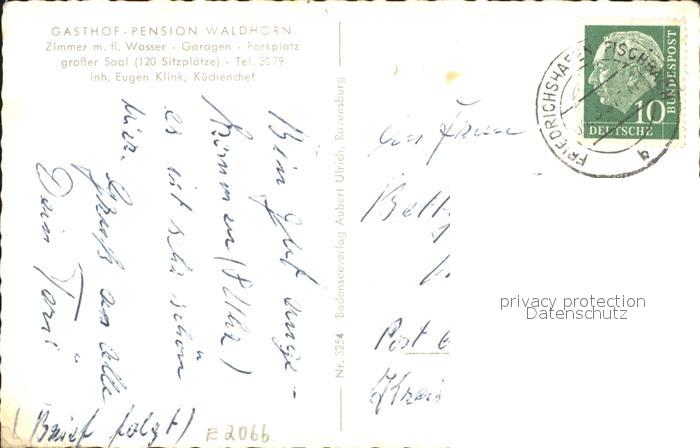 GASTHOF-PENSION WALDHORN
Zimmer m. fl. Wasser - Garagen - Parkplatz
großer Saal (120 Sitzplätze) - Tel. 3079
Inh. Eugen Klink, Küchenchef
Bin gut ange-
kommen (8 Uhr)
es ist sehr schön
hier. Gruß an alle
Dein
(Brief folgt)
E 2066
Nr. 3254 Bodenseeverlag Aubert Ulrich, Ravensburg
FRIEDRICHSHAFEN-FISCHBA
b
10
DEUTSCHE
BUNDESPOST
Frau
Post
Kreis
privacy protection
Datenschutz